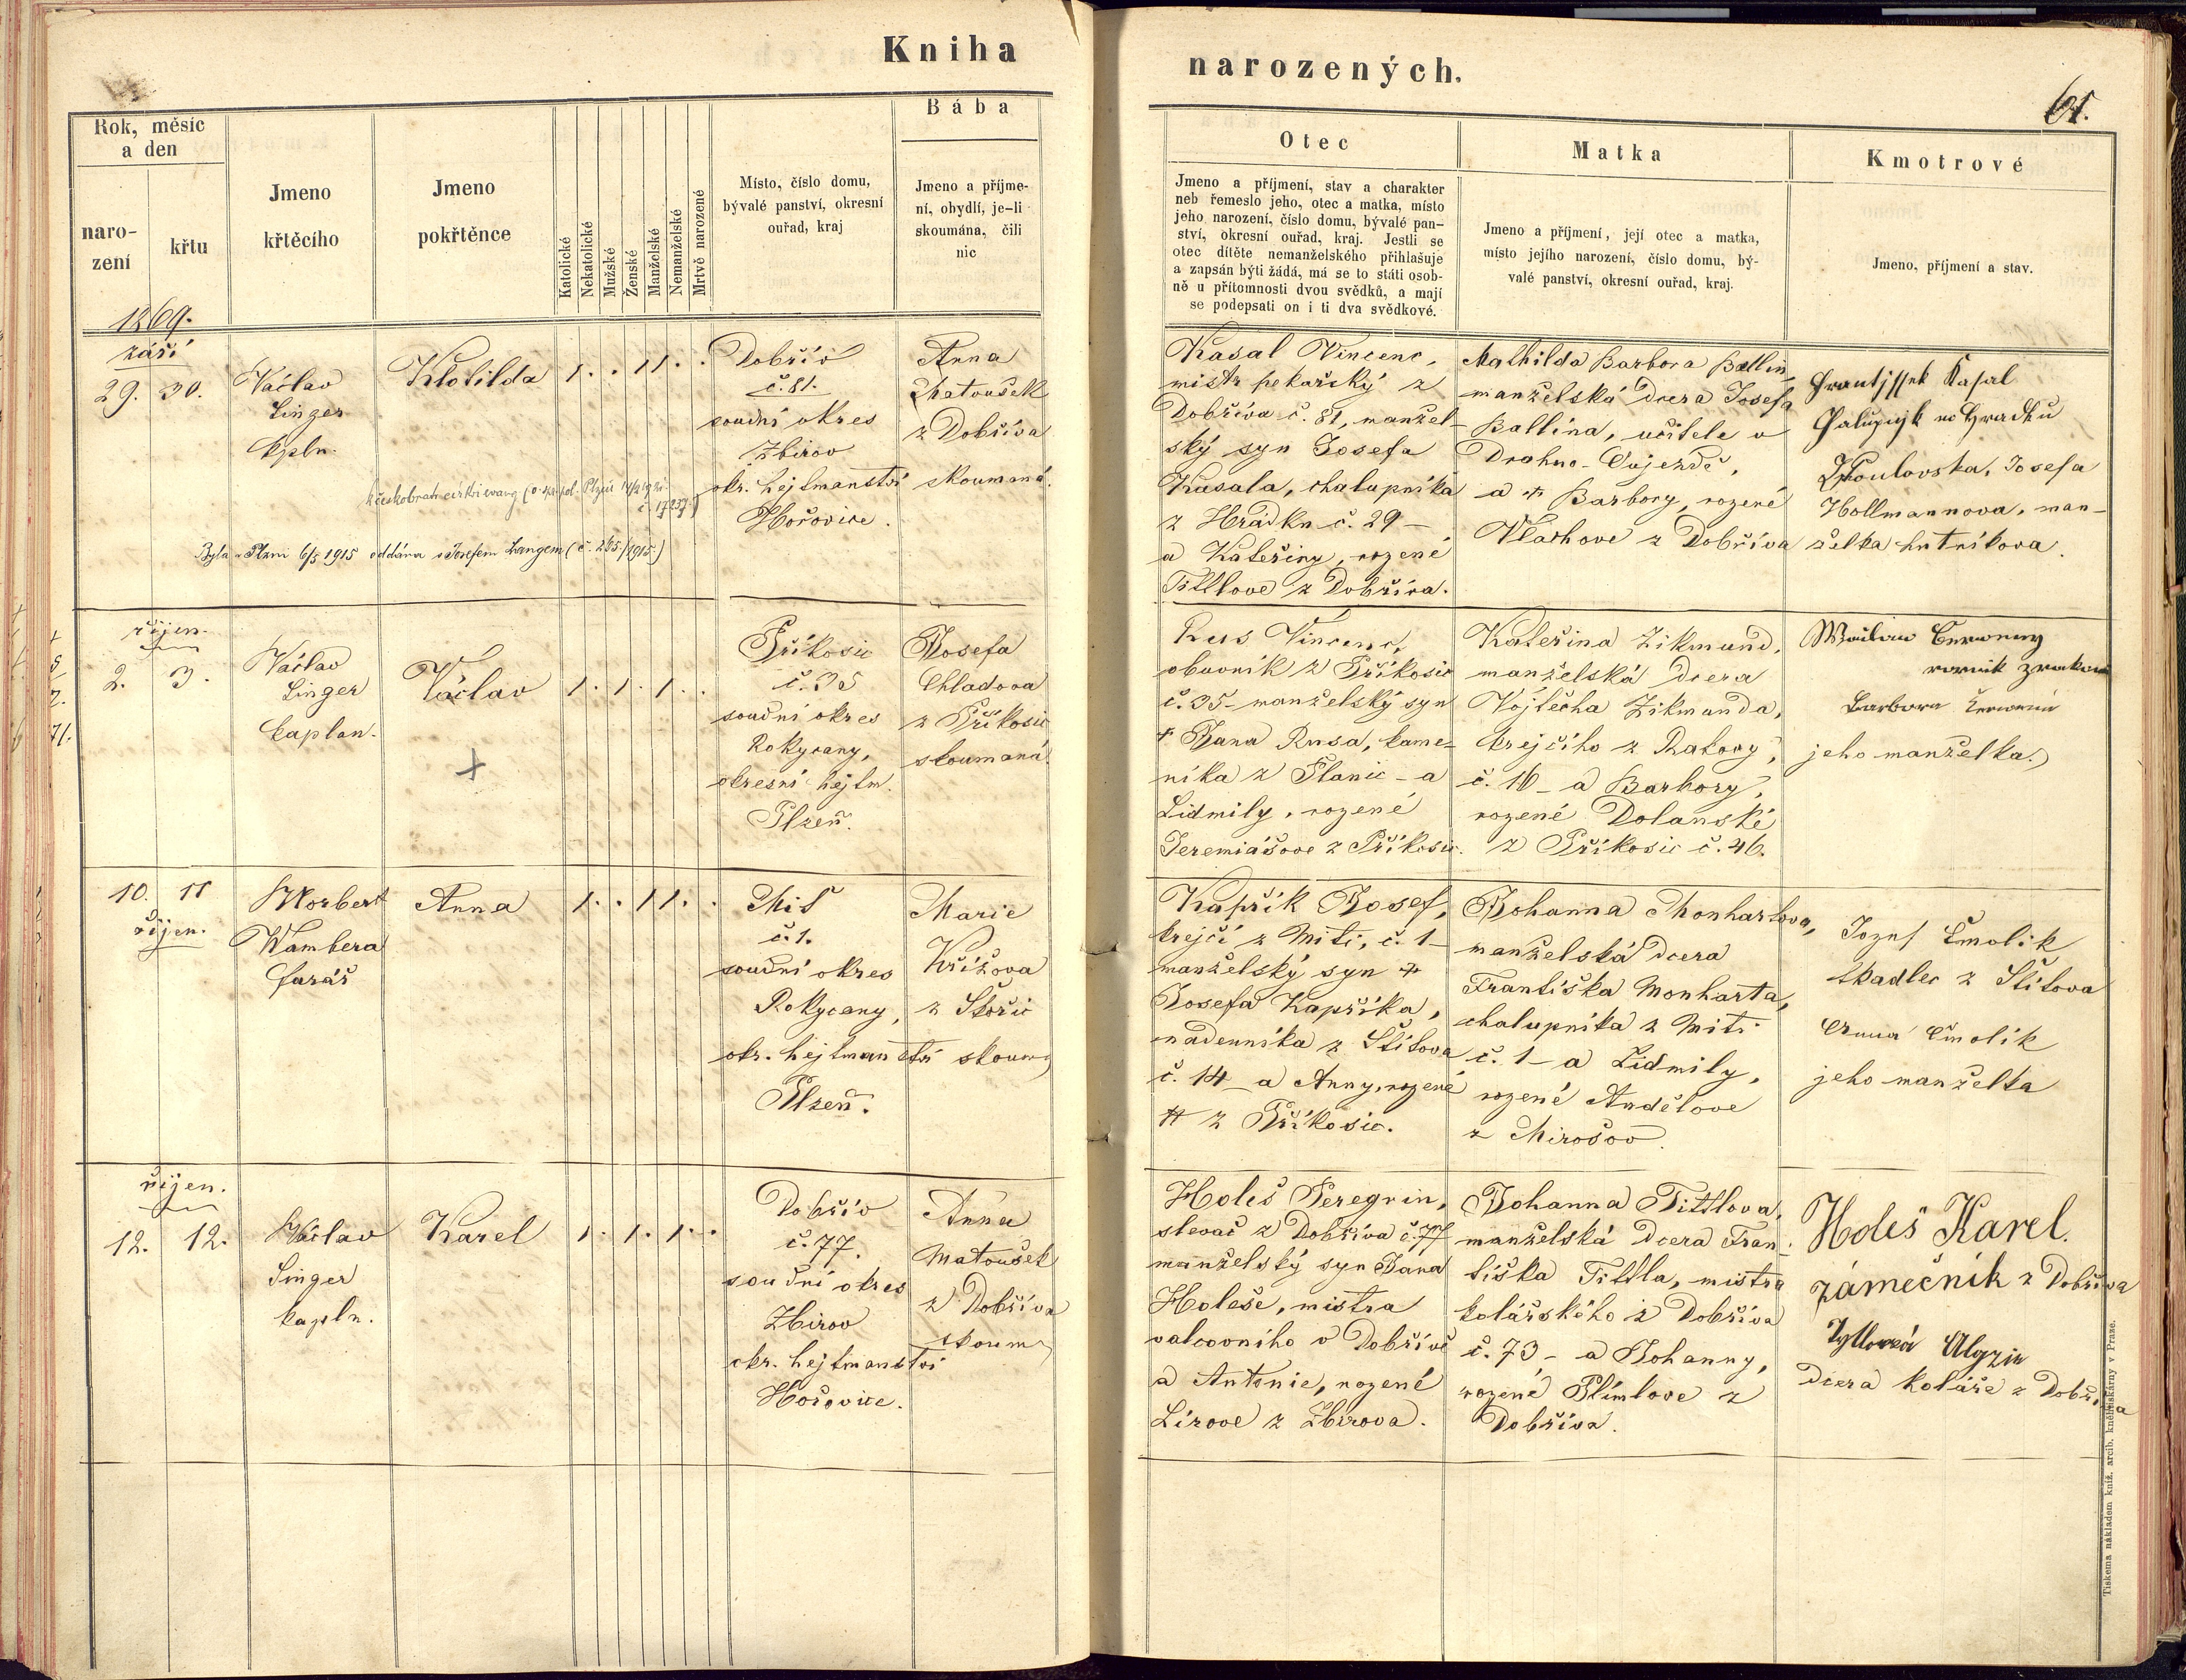 Kniha
narozených.
61.
Rok, měsíc
a den
naro-
zení
křtu
Jmeno
křtěcího
Jmeno
pokřtěnce
Katolické
Nekatolické
Mužské
Ženské
Manželské
Nemanželské
Mrtvě narozené
Místo, číslo domu,
bývalé panství, okresní
ouřad, kraj
Bába
Jmeno a příjme-
ní, obydlí, je-li
skoumána, čili
nic
Otec
Jmeno a příjmení, stav a charakter
neb řemeslo jeho, otec a matka, místo
jeho narození, číslo domu, bývalé pan-
ství, okresní ouřad, kraj. Jestli se
otec dítěte nemanželského přihlašuje
a zapsán býti žádá, má se to státi osob-
ně u přítomnosti dvou svědků, a mají
se podepsati on i ti dva svědkové.
Matka
Jmeno a příjmení, její otec a matka,
místo jejího narození, číslo domu, bý-
valé panství, okresní ouřad, kraj.
Kmotrové
Jmeno, příjmení a stav.
1869.
září
29. 30.
Václav
Singer
kpln.
Klotilda
1 . . 1 1 . .
Dobřív
č. 81.
soudní okres
Zbirov
okr. hejtmanství
Hořovice.
Anna
Matoušek
z Dobříva
skoumaná.
Byla v Plzni 6/5 1915 oddána s Josefem Langem (č. 265/1915.)
Kasal Vincenc,
mistr pekařský z
Dobříva č. 81, manžel-
ský syn Josefa
Kasala, chalupníka
z Hrádku č. 29 -
a Kateřiny, rozené
Tittlove z Dobříva.
Mathilda Barbora Ballin,
manželská dcera Josefa
Ballína, učitele v
Drahno-Oujezdě,
a + Barbory, rozené
Vlachove z Dobříva
Frantissek Kasal
Josefa
Hollmannova, man-
želka hutníkova.
říjen.
2. 3.
Václav
Singer
kaplan.
Václav
1 . 1 . 1 . .
+
Příkosic
č. 35
soudní okres
Rokycany,
okresní hejtm.
Plzeň.
Josefa
Chladova
z Příkosic
skoumaná.
Rus Vincenc,
obuvník z Příkosic
č. 35 - manželský syn
+ Jana Rusa, kame-
níka z Planic - a
Lidmily, rozené
Jeremiášove z Příkosic.
Kateřina Zikmund,
manželská dcera
Vojtěcha Zikmunda,
krejčího z Rakovy,
č. 16 - a Barbory,
rozené Dolanské
z Příkosic č. 46.
Barbora
jeho manželka.
10. 11
říjen.
Norbert
Wambera
farář
Anna
1 . . 1 1 . .
Mit
č. 1.
soudní okres
Rokycany,
okr. hejtmanství
Plzeň.
Marie
Křížova
z Skořic
skoum
Kapřík Josef,
krejčí z Miti, č. 1 -
manželský syn +
Josefa Kapříka,
nádenníka z Štítova
č. 14 - a Anny, rozené
# z Příkosic.
Johanna Monhartova,
manželská dcera
Františka Monharta,
chalupníka z Miti
č. 1 - a Lidmily,
rozené Andělove
z Mirošov.
Jozef Smolik
tkadlec z Štitova
Anna Smolik
jeho manželka
říjen.
12. 12.
Václav
Singer
kapln.
Karel
1 . 1 . 1 . .
Dobřív
č. 77.
soudní okres
Zbirov
okr. hejtmanství
Hořovice.
Anna
Matoušek
z Dobříva
skoum
Holeš Peregrin,
slevač z Dobříva č. 77
manželský syn Jana
Holeše, mistra
valcovního v Dobřívě
a Antonie, rozené
Lírove z Zbirova.
Johanna Tittlova,
manželská dcera Fran-
tiška Tittla, mistra
kolářského z Dobříva
č. 73 - a Johanny,
rozené Plímlove z
Dobříva.
Holeš Karel.
zámečník z Dobříva
dcera koláře z Dobříva
Tiskem a nákladem kníž. arcib. knihtiskárny v Praze.